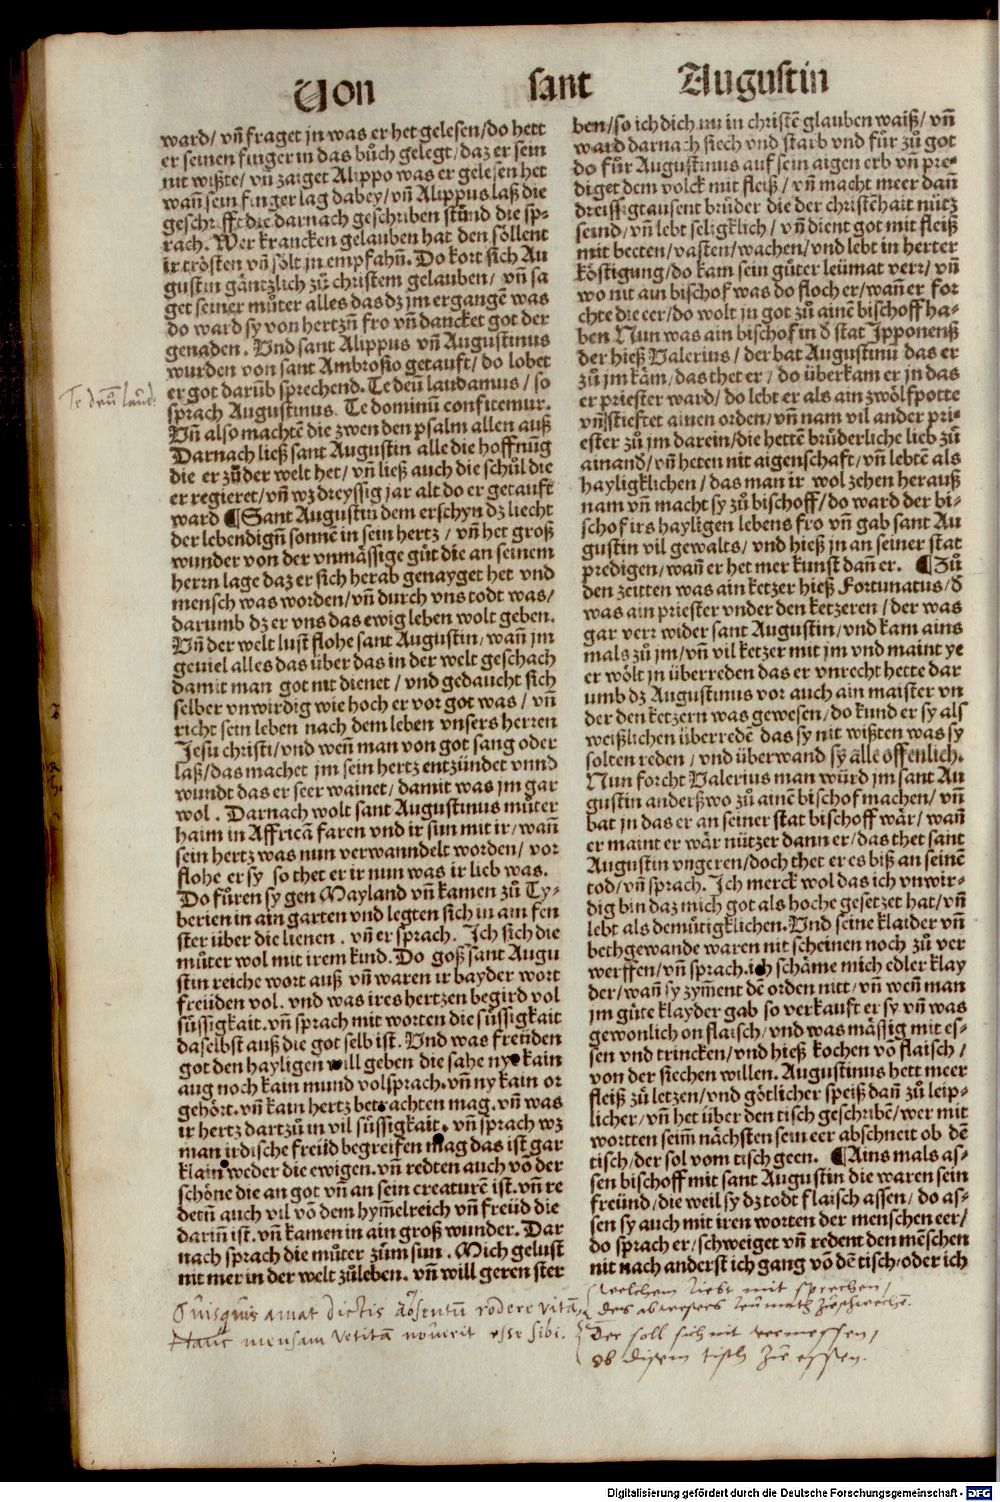 Von sant Augustin
ward/ vñ fraget jn was er het gelesen/do hett
er seinen finger in das bůch gelegt/daz er sein
nit wißte/ vñ zaiget Alippo was er gelesen het
wañ sein finger lag dabey/vñ Alippus laß die
geschrifft die darnach geschriben stůnd die sp-
rach. Wer krancken gelauben hat den söllent
ir trösten vñ sölt jn empfahñ. Do kort sich Au
gustin gäntzlich zů christem gelauben/ vñ sa
get seiner můter alles das dz jm ergangē was
do ward sy von hertzñ fro vñ dancket got der
genaden. Vnd sant Alippus vñ Augustinus
wurden von sant Ambrosio getauft/do lobet
er got darũb sprechend. Te deũ laudamus/ so
Te deũ laud.
sprach Augustinus. Te dominũ confitemur.
Vñ also machtē die zwen den psalm allen auß
Darnach ließ sant Augustin alle die hoffnũg
die er zů der welt het/ vñ ließ auch die schůl die
er regieret/vñ wz dreyssig jar alt do er getauft
ward ¶Sant Augustin dem erschyn dz liecht
der lebendigñ sonnē in sein hertz/ vñ het groß
wunder von der vnmässige güt die an seinem
herrn lage daz er sich herab genayget het vnd
mensch was worden/vñ durch vns todt was/
darumb dz er vns das ewig leben wolt geben.
Vñ der welt lust flohe sant Augustin/wañ jm
geuiel alles das über das in der welt geschach
damit man got nit dienet/ vnd gedaucht sich
selber vnwirdig wie hoch er vor got was/ vñ
richt sein leben nach dem leben vnsers herren
Jesu christi/vnd weñ man von got sang oder
laß/das machet jm sein hertz entzündet vnnd
wundt das er seer wainet/damit was jm gar
wol. Darnach wolt sant Augustinus můter
haim in Affricã faren vnd ir sun mit ir/wañ
sein hertz was nun verwanndelt worden/ vor
flohe er sy so thet er ir nun was ir lieb was.
Do fůren sy gen Mayland vñ kamen zů Ty-
berien in ain garten vnd legten sich in ain fen
ster über die lienen. vñ er sprach. Ich sich die
můter wol mit irem kind. Do goß sant Augu
stin reiche wort auß vñ waren ir bayder wort
freüden vol. vnd was ires hertzen begird vol
süssigkait. vñ sprach mit worten die süssigkait
daselbst auß die got selb ist. Vnd was freüden
got den hayligen will geben die sahe nye kain
aug noch kain mund volsprach. vñ ny kain or
gehört. vñ kain hertz betrachten mag. vñ was
ir hertz dartzů in vil süssigkait. vñ sprach wz
man irdische freüd begreifen mag das ist gar
klain weder die ewigen. vñ redten auch võ der
schöne die an got vñ an sein creaturē ist. vñ re
detñ auch vil võ dem hym̃elreich vñ freüd die
dariñ ist. vñ kamen in ain groß wunder. Dar
nach sprach die můter zům sun. Mich gelust
nit mer in der welt zůleben. vñ will geren ster
ben/so ich dich nu in christē glauben waiß/ vñ
ward darnach siech vnd starb vnd fůr zů got
do fůr Augustinus auf sein aigen erb vñ pre-
diget dem volck mit fleiß/ vñ macht meer dañ
dreissigtausent brüder die der christēhait nütz
seind/vñ lebt seligklich/ vñ dient got mit fleiß
mit betten/vasten/wachen/vnd lebt in herter
köstigung/do kam sein gůter leümat verr/ vñ
wo nit ain bischof was do floch er/wañ er for
chte die eer/do wolt jn got zů ainē bischoff ha-
ben Nun was ain bischof in d̄ stat Ipponenß
der hieß Valerius/ der bat Augustinũ das er
zů jm käm/das thet er/ do überkam er jn das
er priester ward/do lebt er als ain zwölfpotte
vñ stieftet ainen orden/vñ nam vil ander pri-
ester zů jm darein/die hettē brüderliche lieb zů
ainand/vñ heten nit aigenschaft/vñ lebtē als
hayligklichen/das man ir wol zehen herauß
nam vñ macht sy zů bischoff/do ward der bi-
schof irs hayligen lebens fro vñ gab sant Au
gustin vil gewalts/ vnd hieß jn an seiner stat
predigen/wañ er het mer kunst dañ er. ¶Zů
den zeitten was ain ketzer hieß Fortunatus/d̄
was ain priester vnder den ketzeren/der was
gar verr wider sant Augustin/vnd kam ains
mals zů jm/vñ vil ketzer mit jm vnd maint ye
er wölt jn überreden das er vnrecht hette dar
umb dz Augustinus vor auch ain maister vn
der den ketzern was gewesen/do kund er sy als
weißlichen überredē das sy nit wißten was sy
solten reden/ vnd überwand sy alle offenlich.
Nun forcht Valerius man würd jm sant Au
gustin anderßwo zů ainē bischof machen/ vñ
bat jn das er an seiner stat bischoff wär/ wañ
er maint er wär nützer dann er/das thet sant
Augustin vngeren/doch thet er es biß an seinē
tod/vñ sprach. Ich merck wol das ich vnwir-
dig bin daz mich got als hoche gesetzet hat/vñ
lebt als demütigklichen. Vnd seine klaider vñ
bethgewande waren nit scheinen noch zů ver
werffen/vñ sprach. ich schäme mich edler klay
der/wañ sy zym̃ent dē orden nitt/vñ weñ man
jm gůte klayder gab so verkauft er sy vñ was
gewonlich on flaisch/vnd was mässig mit es-
sen vnd trincken/vnd hieß kochen võ flaisch/
von der siechen willen. Augustinus hett meer
fleiß zů letzen/vnd götlicher speiß dañ zů leip-
licher/vñ het über den tisch geschribē/wer mit
wortten seim̃ nächsten sein eer abschneit ob dē
tisch/der sol vom tisch geen. ¶Ains mals as-
sen bischoff mit sant Augustin die waren sein
freünd/die weil sy dz todt flaisch assen/ do as-
sen sy auch mit iren worten der menschen eer/
do sprach er/schweiget vñ redent den mēschen
nit nach anderst ich gang võ dē tisch/oder ich
Quisquis amat dictis absentũ rodere vitã,
Hanc mensam vetitã noverit esse sibi.
Welchem liebt mit sprechen,
des abwesers leümath zůschwechē.
Der soll sich nit vermessen,
ob disem tisch zů essen.
Digitalisierung gefördert durch die Deutsche Forschungsgemeinschaft - DFG